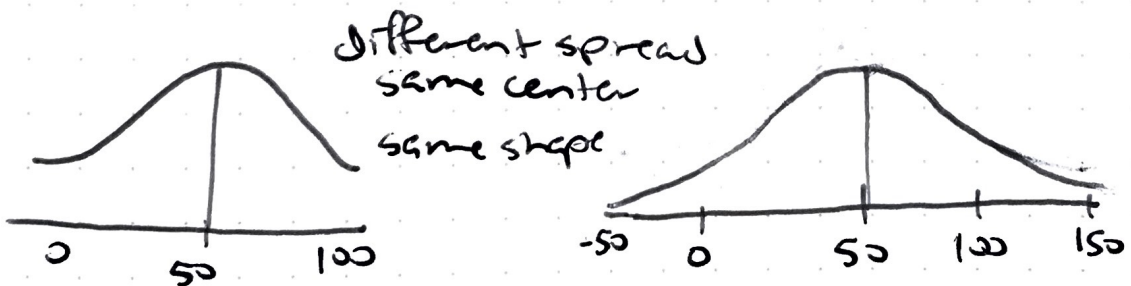 different spread
same center
same shape
0 50 100
-50 0 50 100 150